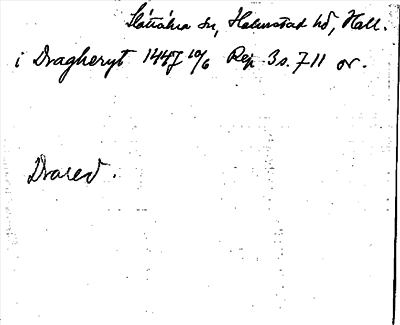 Slättåkra sn, Halmstad hd, Hall.
i Dragheryt 1447 10/6 Rep 3 s. 711 or.
Drared.